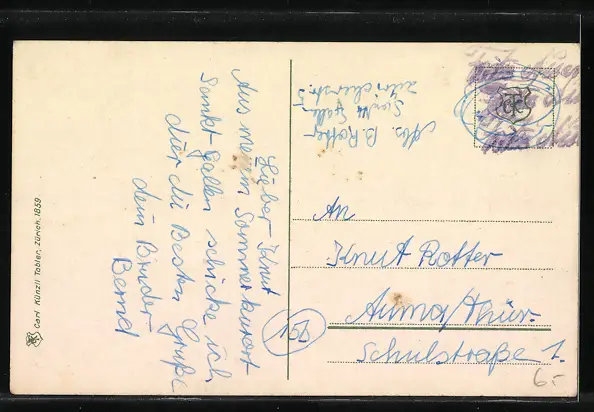 Lieber Knut
Aus meinem Sommerkurort
Sankt Gallen schicke ich
dir die Besten Grüße
dein Bruder
Bernd
Abs. B. Rotter
Sankt Gallen
Zürcherstr. 5
An
Knut Rotter
Auma/Thür.
Schulstraße 1.
15b
6.-
Carl Künzli Tobler, Zürich. 1859